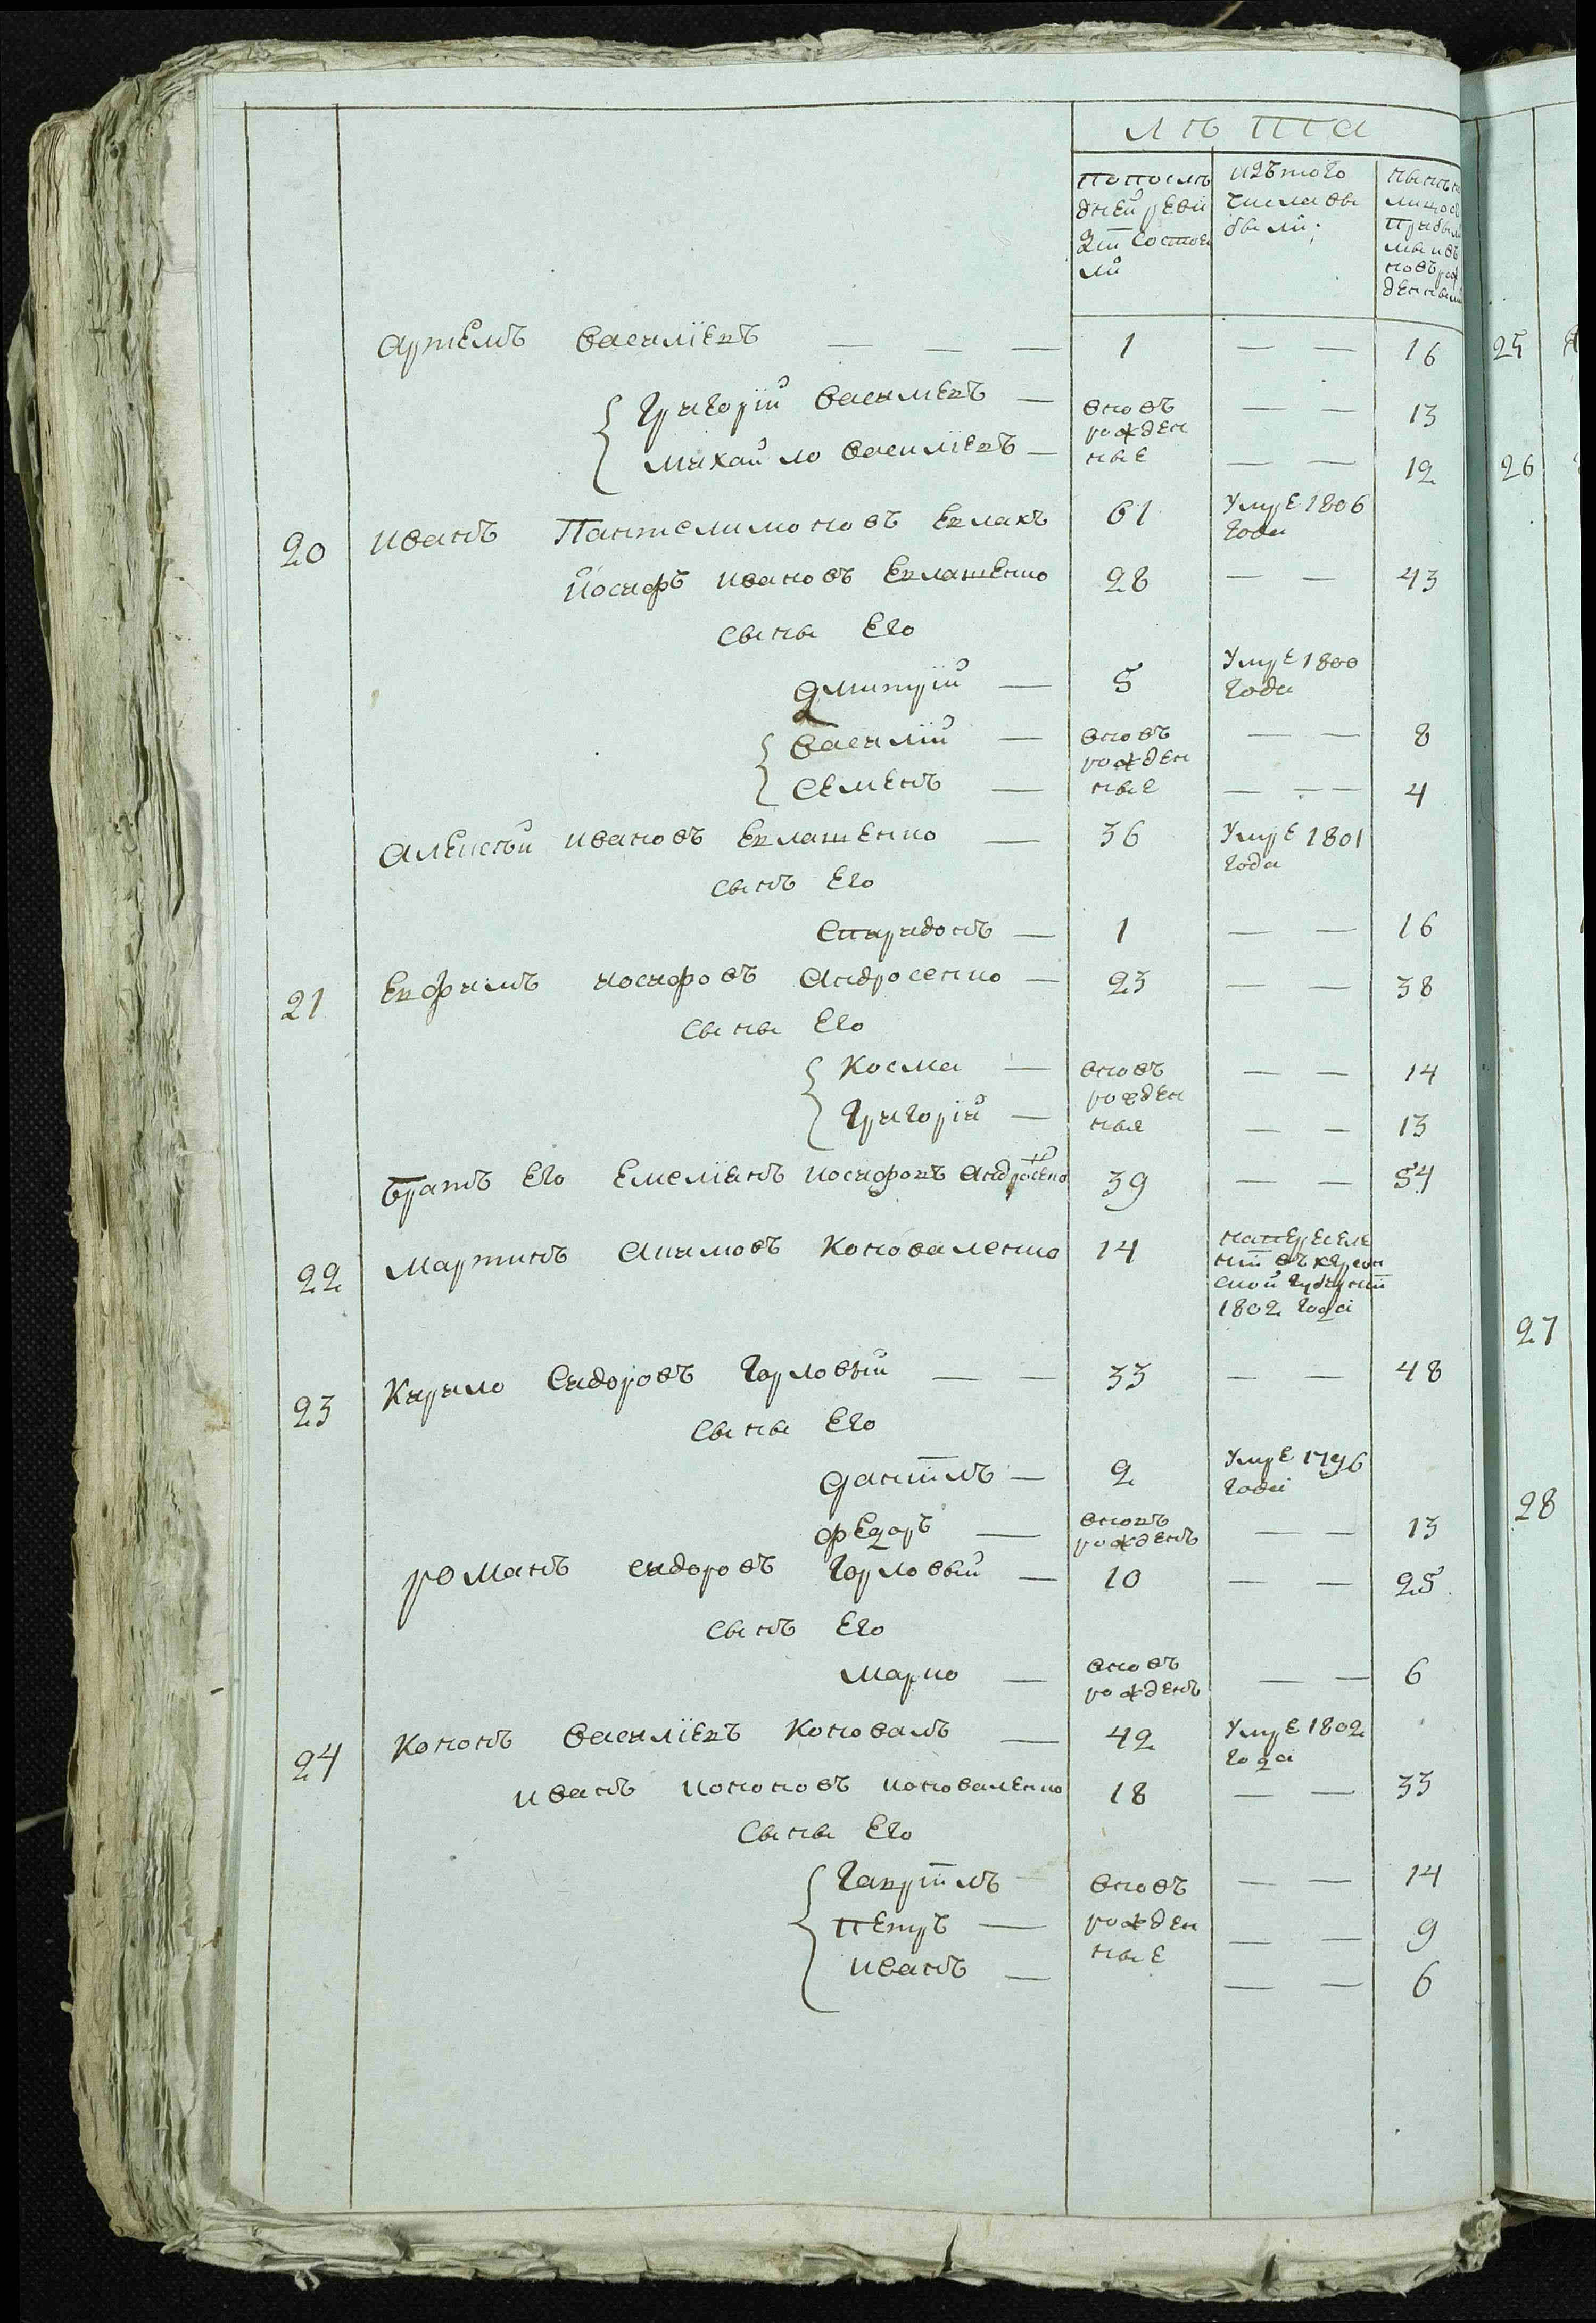 лѣта
попослѣ
дней реви
зіи состоя
ли
изътого
числа вы
были;
Артемъ Василіевъ — — — 1 — — 16
Григорій Василіевъ — вновъ — — 13
рожден
Михайло Василіевъ — ные — — 12
20 Иванъ Пантелимоновъ Евлахъ 61 Умре 1806
года
Йосифъ Ивановъ Евлашенко 28 — — 43
сыны Его
Дмитрій — 5 Умре 1800
года
Василій — вновъ — — 8
рожден
Семенъ — ные — — — 4
Алексѣй Ивановъ Евлашенко — 36 Умре 1801
года
сынъ Его
Спиридонъ — 1 — — 16
21 Евфимъ Иосифовъ Андросенко — 23 — — 38
сыны Его
Косма — вновъ — — 14
рожден
Григорій — ные — — 13
Братъ Его Емеліянъ Иосифовъ Андросенко 39 — — 54
22 Мартинъ Акимовъ Коноваленко 14 напереселе
ніи въ херсон
ской губерніи
1802 года
23 Кирило Сидоровъ Горловый — — 33 — — 48
сыны Его
Даніилъ — 2 Умре 1796
года
Федоръ — вновъ — — 13
рожденъ
Романъ Сидоровъ Горловый — 10 — — 25
сынъ Его
Марко — вновъ — — 6
рожденъ
24 Кононъ Василіевъ Коновалъ — 42 Умре 1802
года
Иванъ Кононовъ Коноваленко 18 — — 33
сыны Его
Гавріилъ вновъ — — 14
Петръ — рожден — — 9
Иванъ — ные — — 6
25
26
27
28